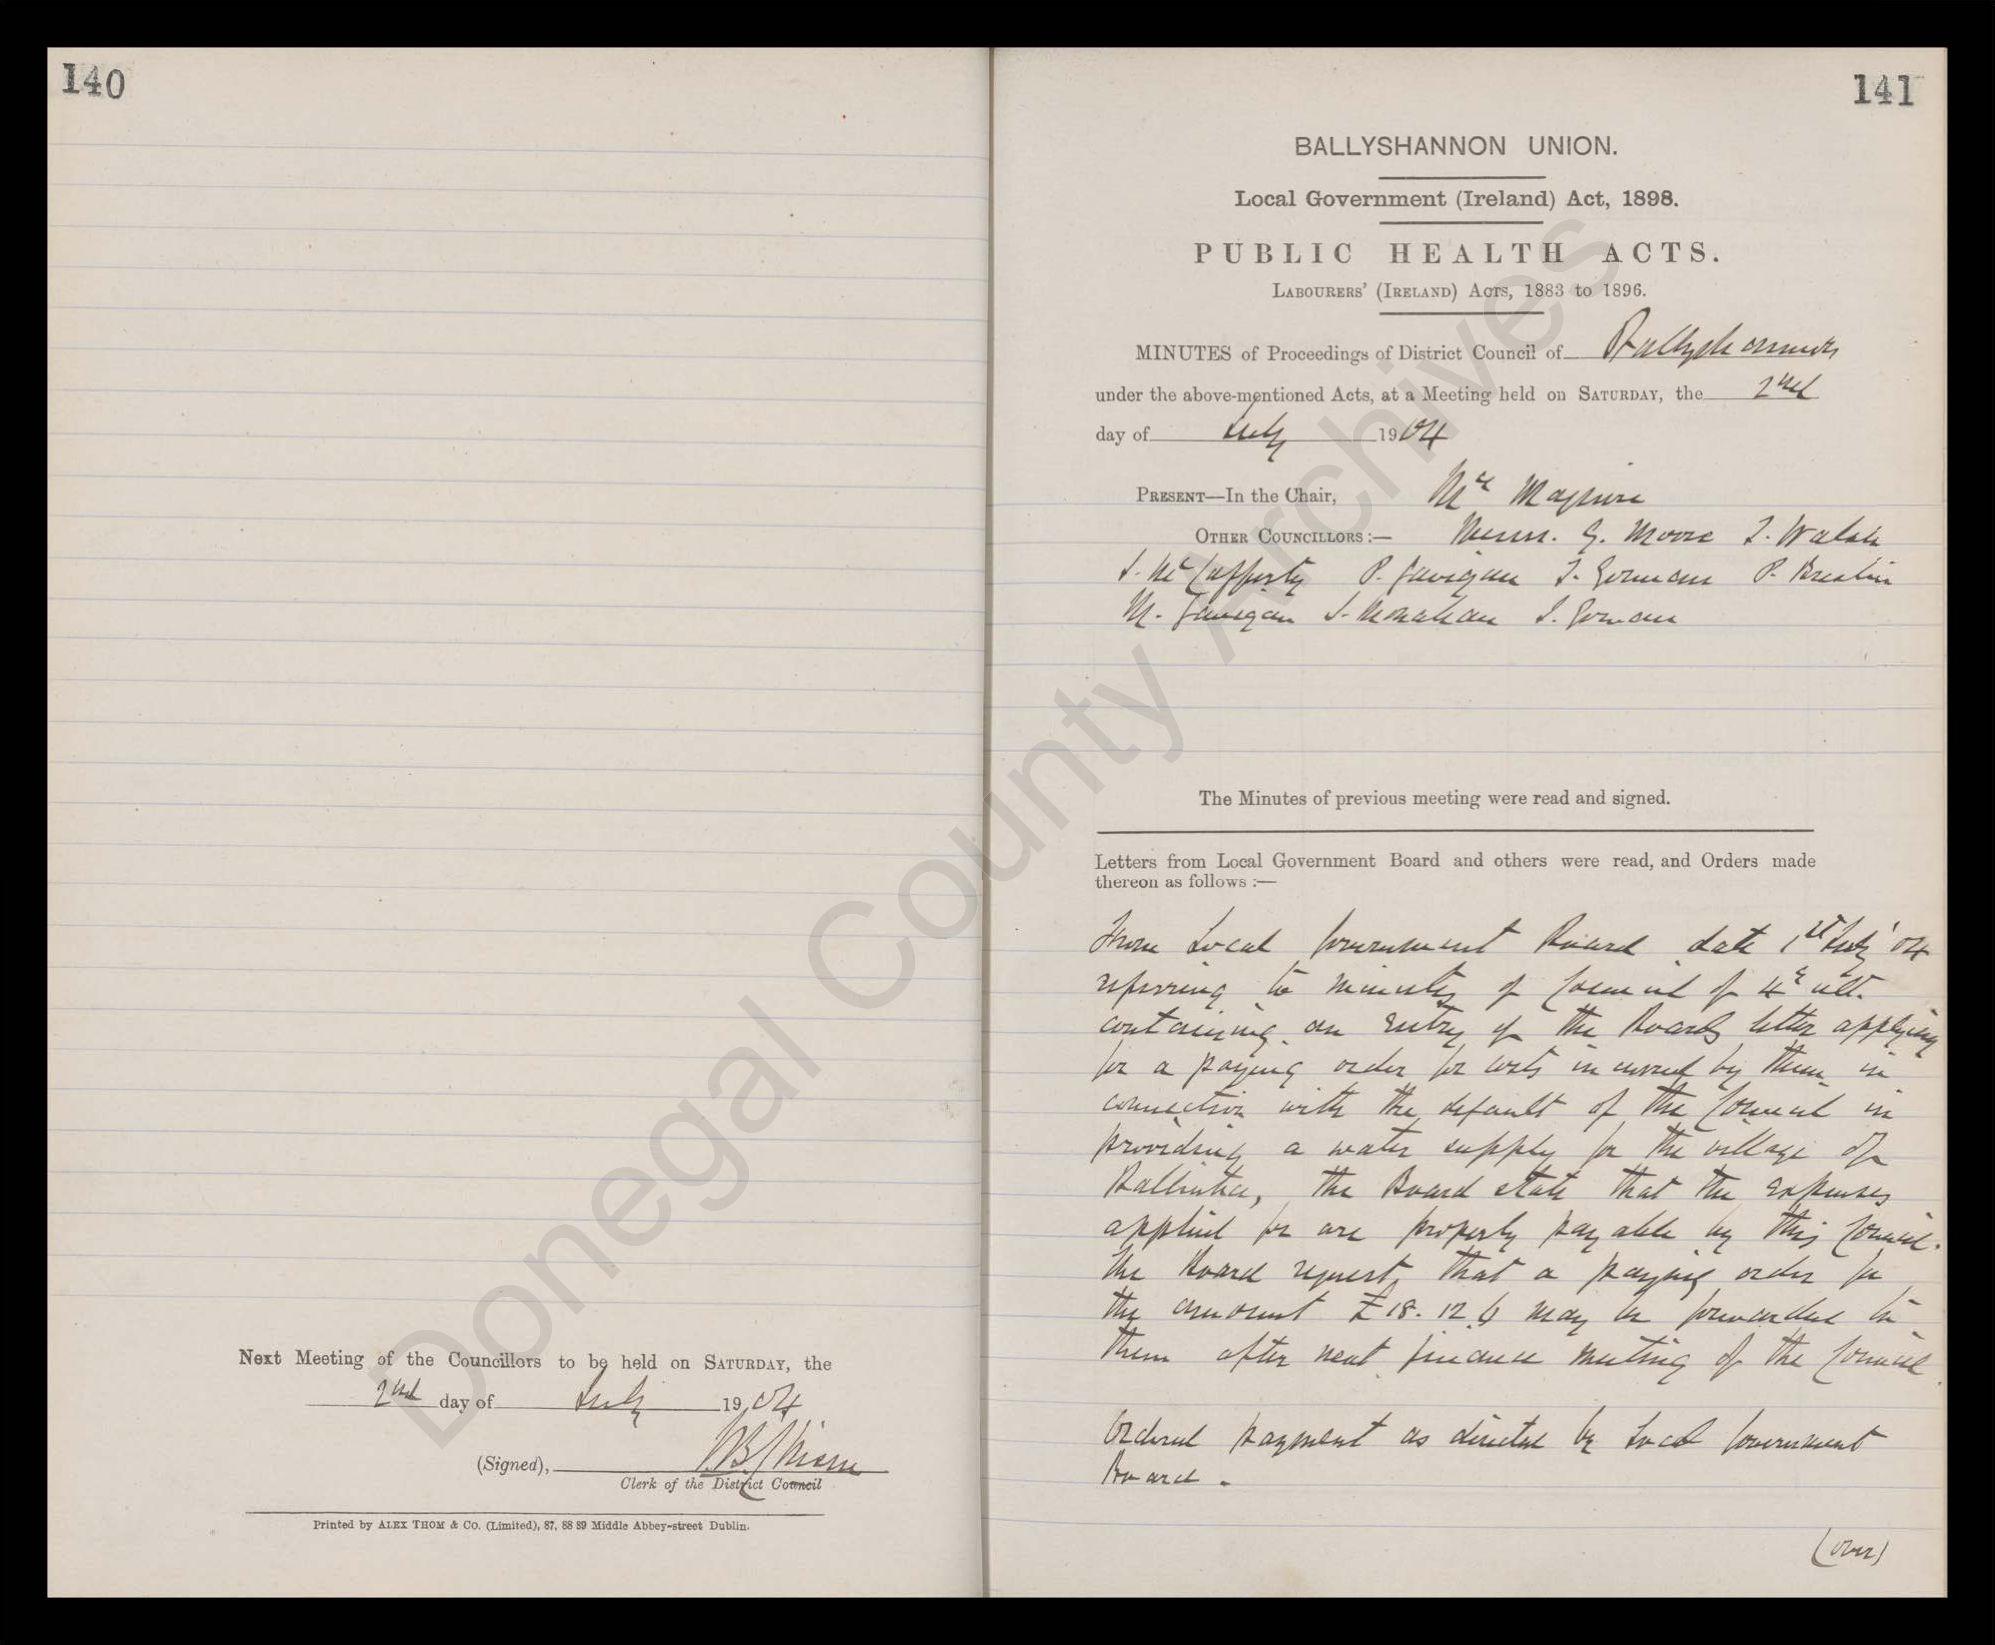 140
Next Meeting of the Councillors to be held on SATURDAY, the
2nd day of July 1904
(Signed),
Clerk of the District Council
Printed by ALEX THOM & Co. (Limited), 87, 88 89 Middle Abbey-street Dublin.
141
BALLYSHANNON UNION.
Local Government (Ireland) Act, 1898.
PUBLIC HEALTH ACTS.
LABOURERS' (IRELAND) ACTS, 1883 to 1896.
MINUTES of Proceedings of District Council of Ballyshannon
under the above-mentioned Acts, at a Meeting held on SATURDAY, the 2nd
day of July 1904
PRESENT—In the Chair, Mr Maguire
OTHER COUNCILLORS :— Messrs. G. Moore T. Walsh
J. McCafferty P. Gavigan T. Gorman P. Breslin
M. Gavigan J. Monahan J. Gorman
The Minutes of previous meeting were read and signed.
Letters from Local Government Board and others were read, and Orders made
thereon as follows :—
From Local Government Board date 1st July '04
referring to minutes of Council of 4th ult.
containing an entry of the Boards letter applying
for a paying order for costs incurred by them in
connection with the default of the Council in
providing a water supply for the village of
Ballintra, the Board state that the expenses
applied for are properly payable by this Council.
The Board request that a paying order for
the amount £18. 12. 6 may be forwarded to
them after next finance meeting of the Council
Ordered payment as directed by Local Government
Board.
(over)
Donegal County Archives